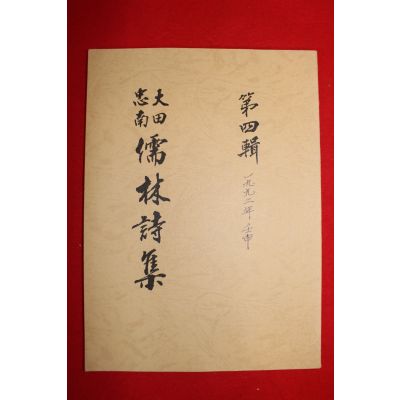 第四輯
一九九二年 壬申
大田
忠南
儒林詩集